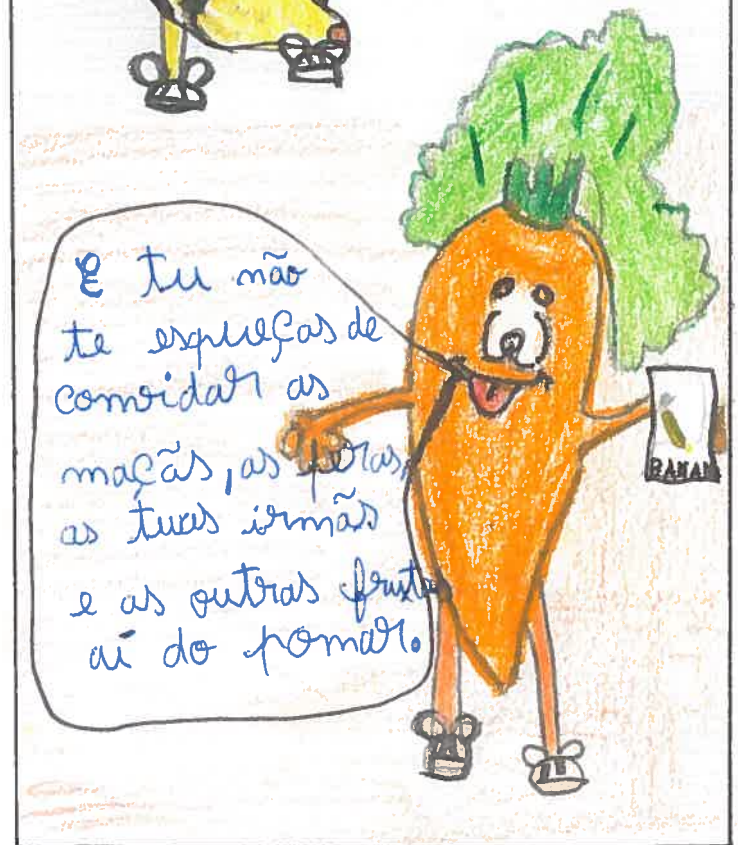 E tu não
te esqueças de
convidar as
maçãs, as peras,
as tuas irmãs
e as outras frut
aí do pomar.
BANAN